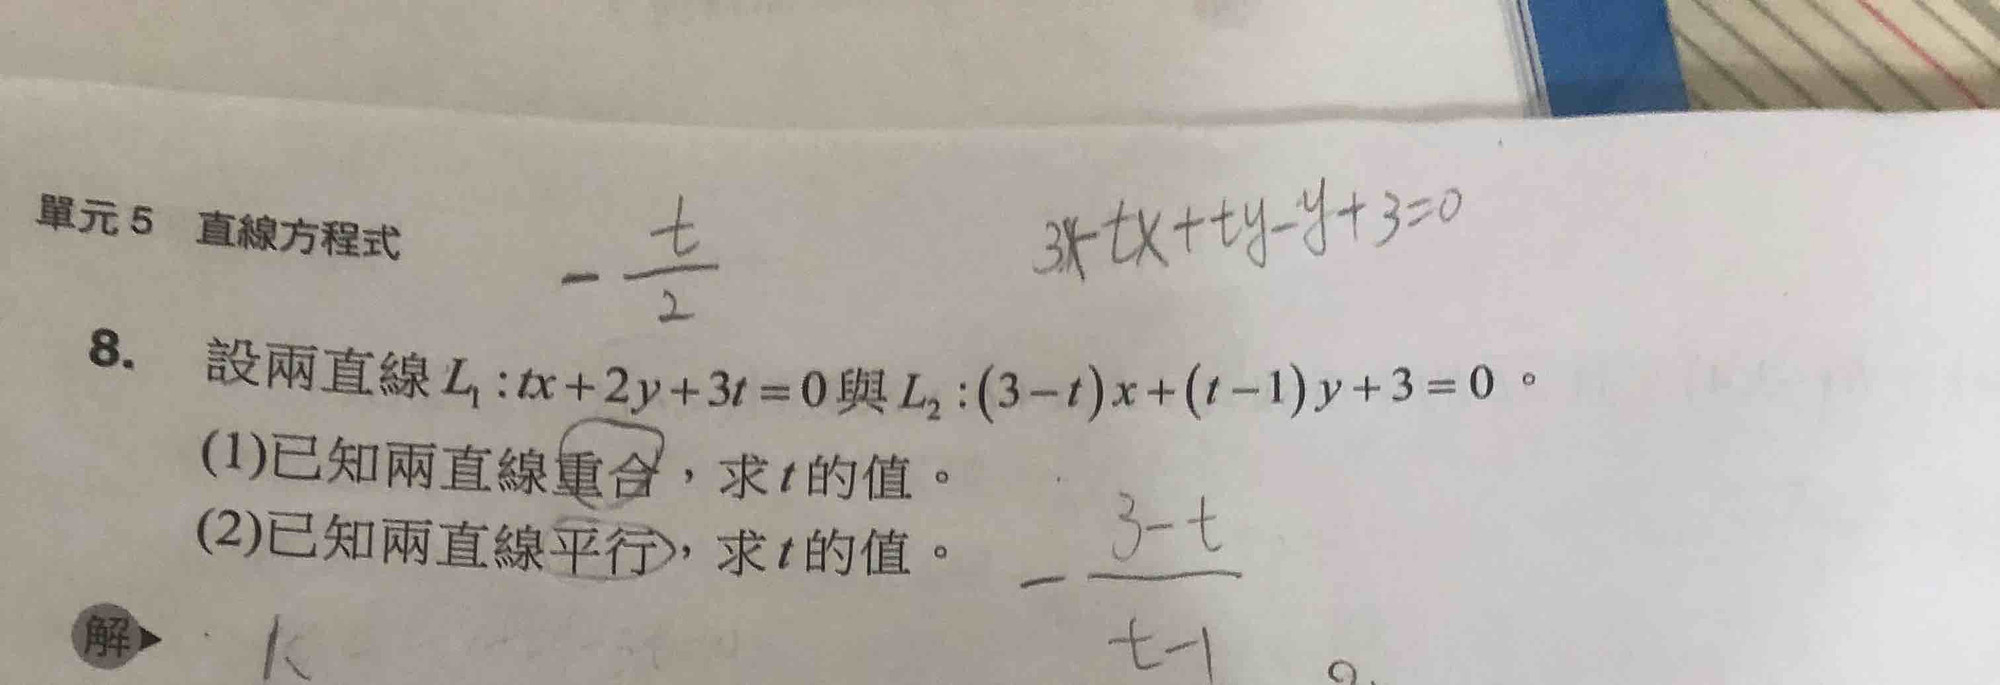 單元 5 直線方程式
-t/2
3x-tx+ty-y+3=0
8. 設兩直線 L₁:tx+2y+3t=0 與 L₂:(3-t)x+(t-1)y+3=0。
(1)已知兩直線重合，求 t 的值。
(2)已知兩直線平行，求 t 的值。
-3-t/t-1
解 k